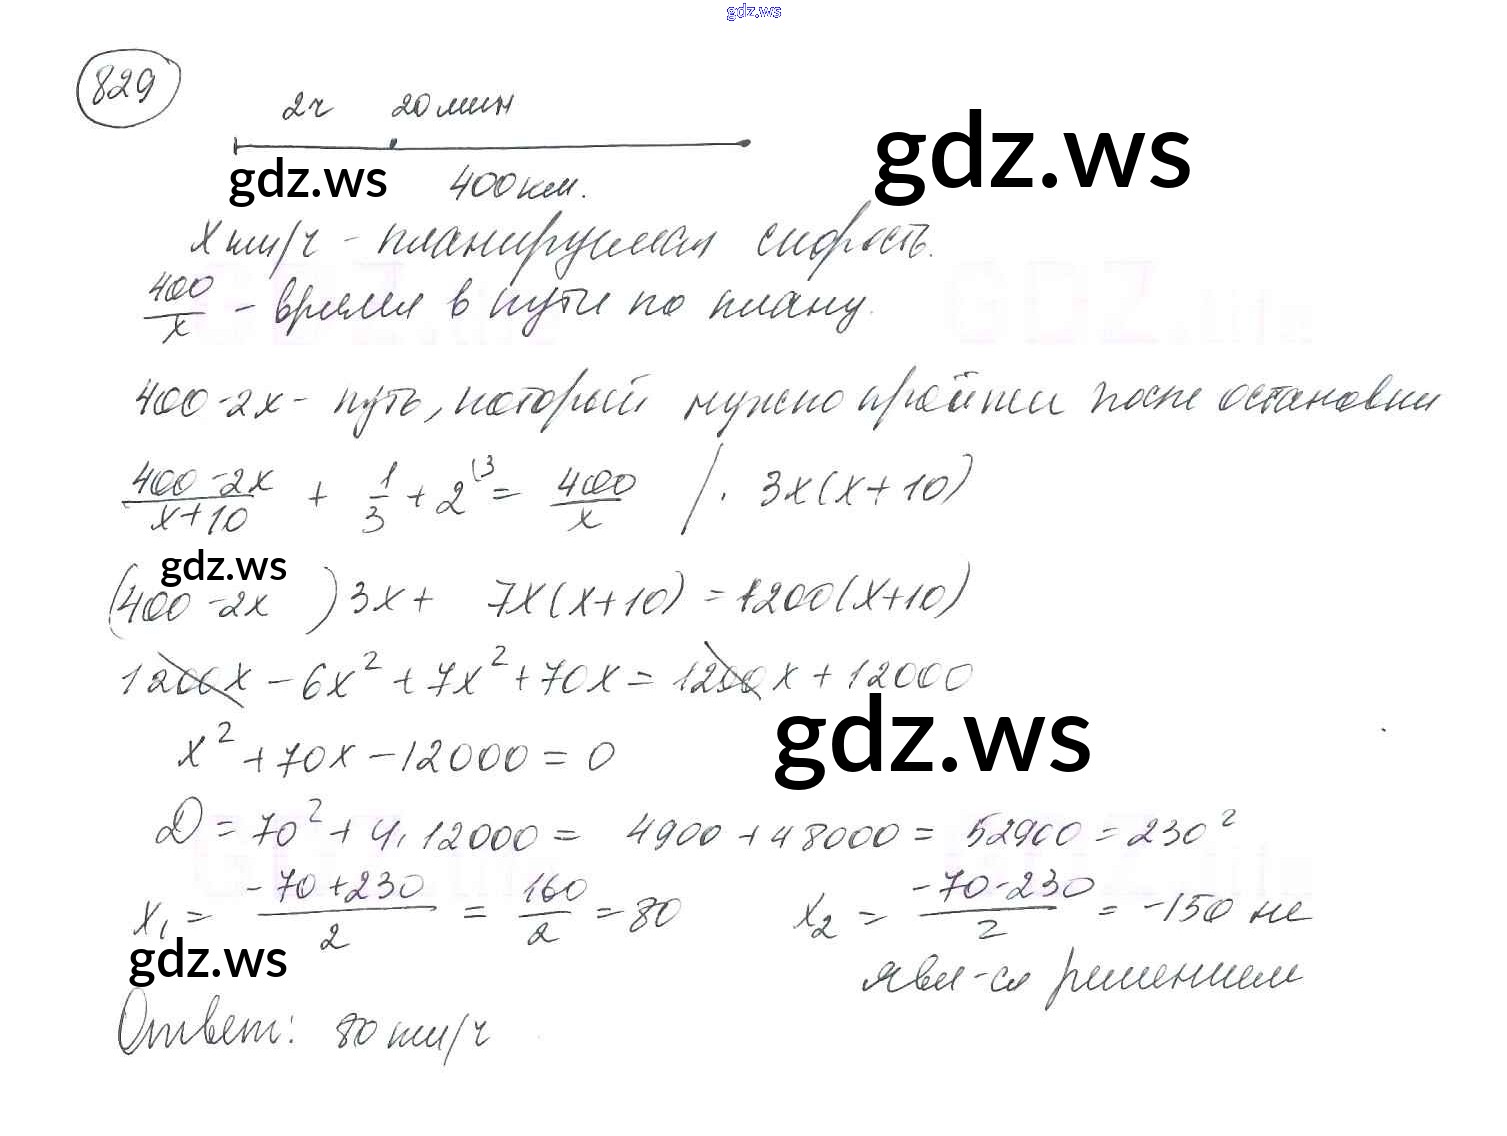 gdz.ws
829
2ч 20 мин
gdz.ws
gdz.ws
400 км.
x км/ч - планируемая скорость.
400/x - время в пути по плану.
400-2x - путь, который нужно пройти после остановки
(400-2x)/(x+10) + 1/3 + 2^(3 = 400/x /· 3x(x+10)
gdz.ws
(400-2x)3x + 7x(x+10) = 1200(x+10)
1200x - 6x² + 7x² + 70x = 1200x + 12000
gdz.ws
x² + 70x - 12000 = 0
D = 70² + 4·12000 = 4900 + 48000 = 52900 = 230²
x₁ = (-70+230)/2 = 160/2 = 80 x₂ = (-70-230)/2 = -150 не
явл-ся решением
gdz.ws
Ответ: 80 км/ч